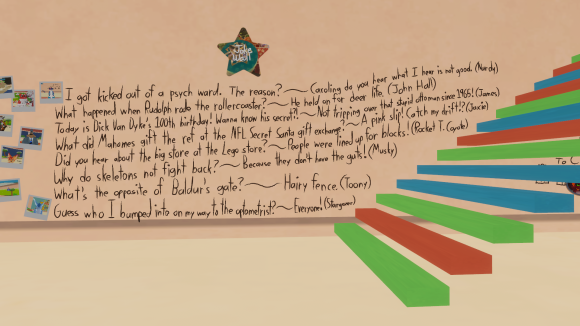 Joke Wall
I got kicked out of a psych ward. The reason?~ Caroling do you hear what I hear is not good. (Nardy)
What happened when Rudolph rode the rollercoaster?~ He held on for deer life. (John Hall)
Today is Dick Van Dyke's 100th birthday! Wanna know his secret?!~ Not tripping over that stupid ottoman since 1965! (James)
What did Mahomes gift the ref at the NFL Secret Santa gift exchange?~ A pink slip! Catch my drift?!
Did you hear about the big store at the Lego store?~ People were lined up for blocks! (Rocket T. Coyote)
Why do skeletons not fight back?~ Because they don't have the guts! (Musky)
What's the opposite of Baldur's gate?~ Hairy fence. (Toony)
Guess who I bumped into on my way to the optometrist?~ Everyone! (Stargazer)
To